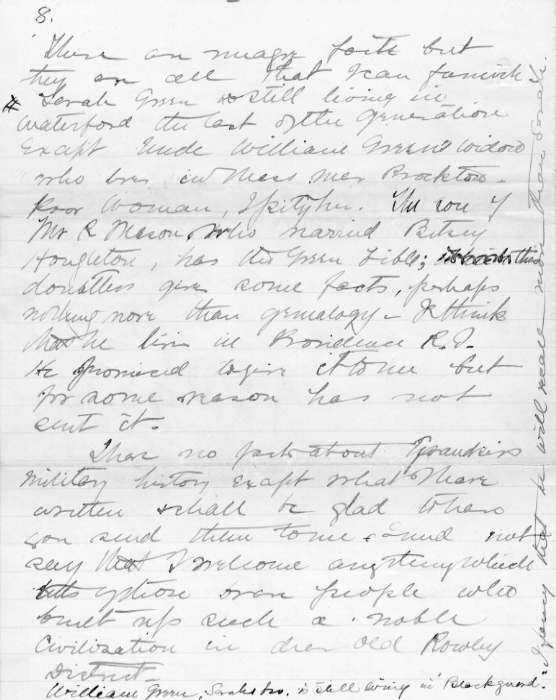 8.
These are meagre facts but
they are all that I can furnish
# Sarah Green is still living in
Waterford the last of the generation
Except Uncle William Green's widow
who lives in Mass near Brockton.
Poor Woman, I pity her. The son of
Mr R Mason, who married Betsey
Houghton, has the Green Bible;
doubtless gives some facts, perhaps
nothing more than genealogy - I think
that he lives in Providence R.I.
He promised to give it to me but
for some reason has not
sent it.
I have no facts about Grandsires
Military history except what I have
written & shall be glad to have
you send them to me. I need not
say that I welcome anything which
those dear people who
built up such a noble
Civilization in dear old Rowley
District.
William Green, Sarahs bro. is still living in Blackguard.
I fancy that he will recall more than Sarah.